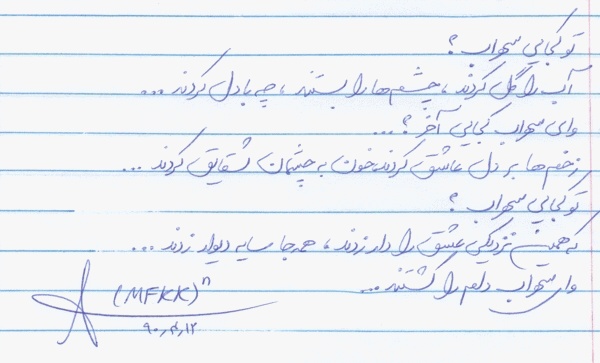 تو کجایی سهراب ؟
آب را گل کردند ، چشم‌ها را بستند ، چه با دل کردند ...
وای سهراب کجایی آخر ؟ ...
زخم‌ها بر دل عاشق کردند خون به چشمان شقایق کردند ...
تو کجایی سهراب ؟
که همین نزدیکی عشق را دار زدند ، همه جا سایه دیوار زدند ...
وای سهراب دلم را کشتند ...
(MFKK)ⁿ
۹۰,۴,۱۲